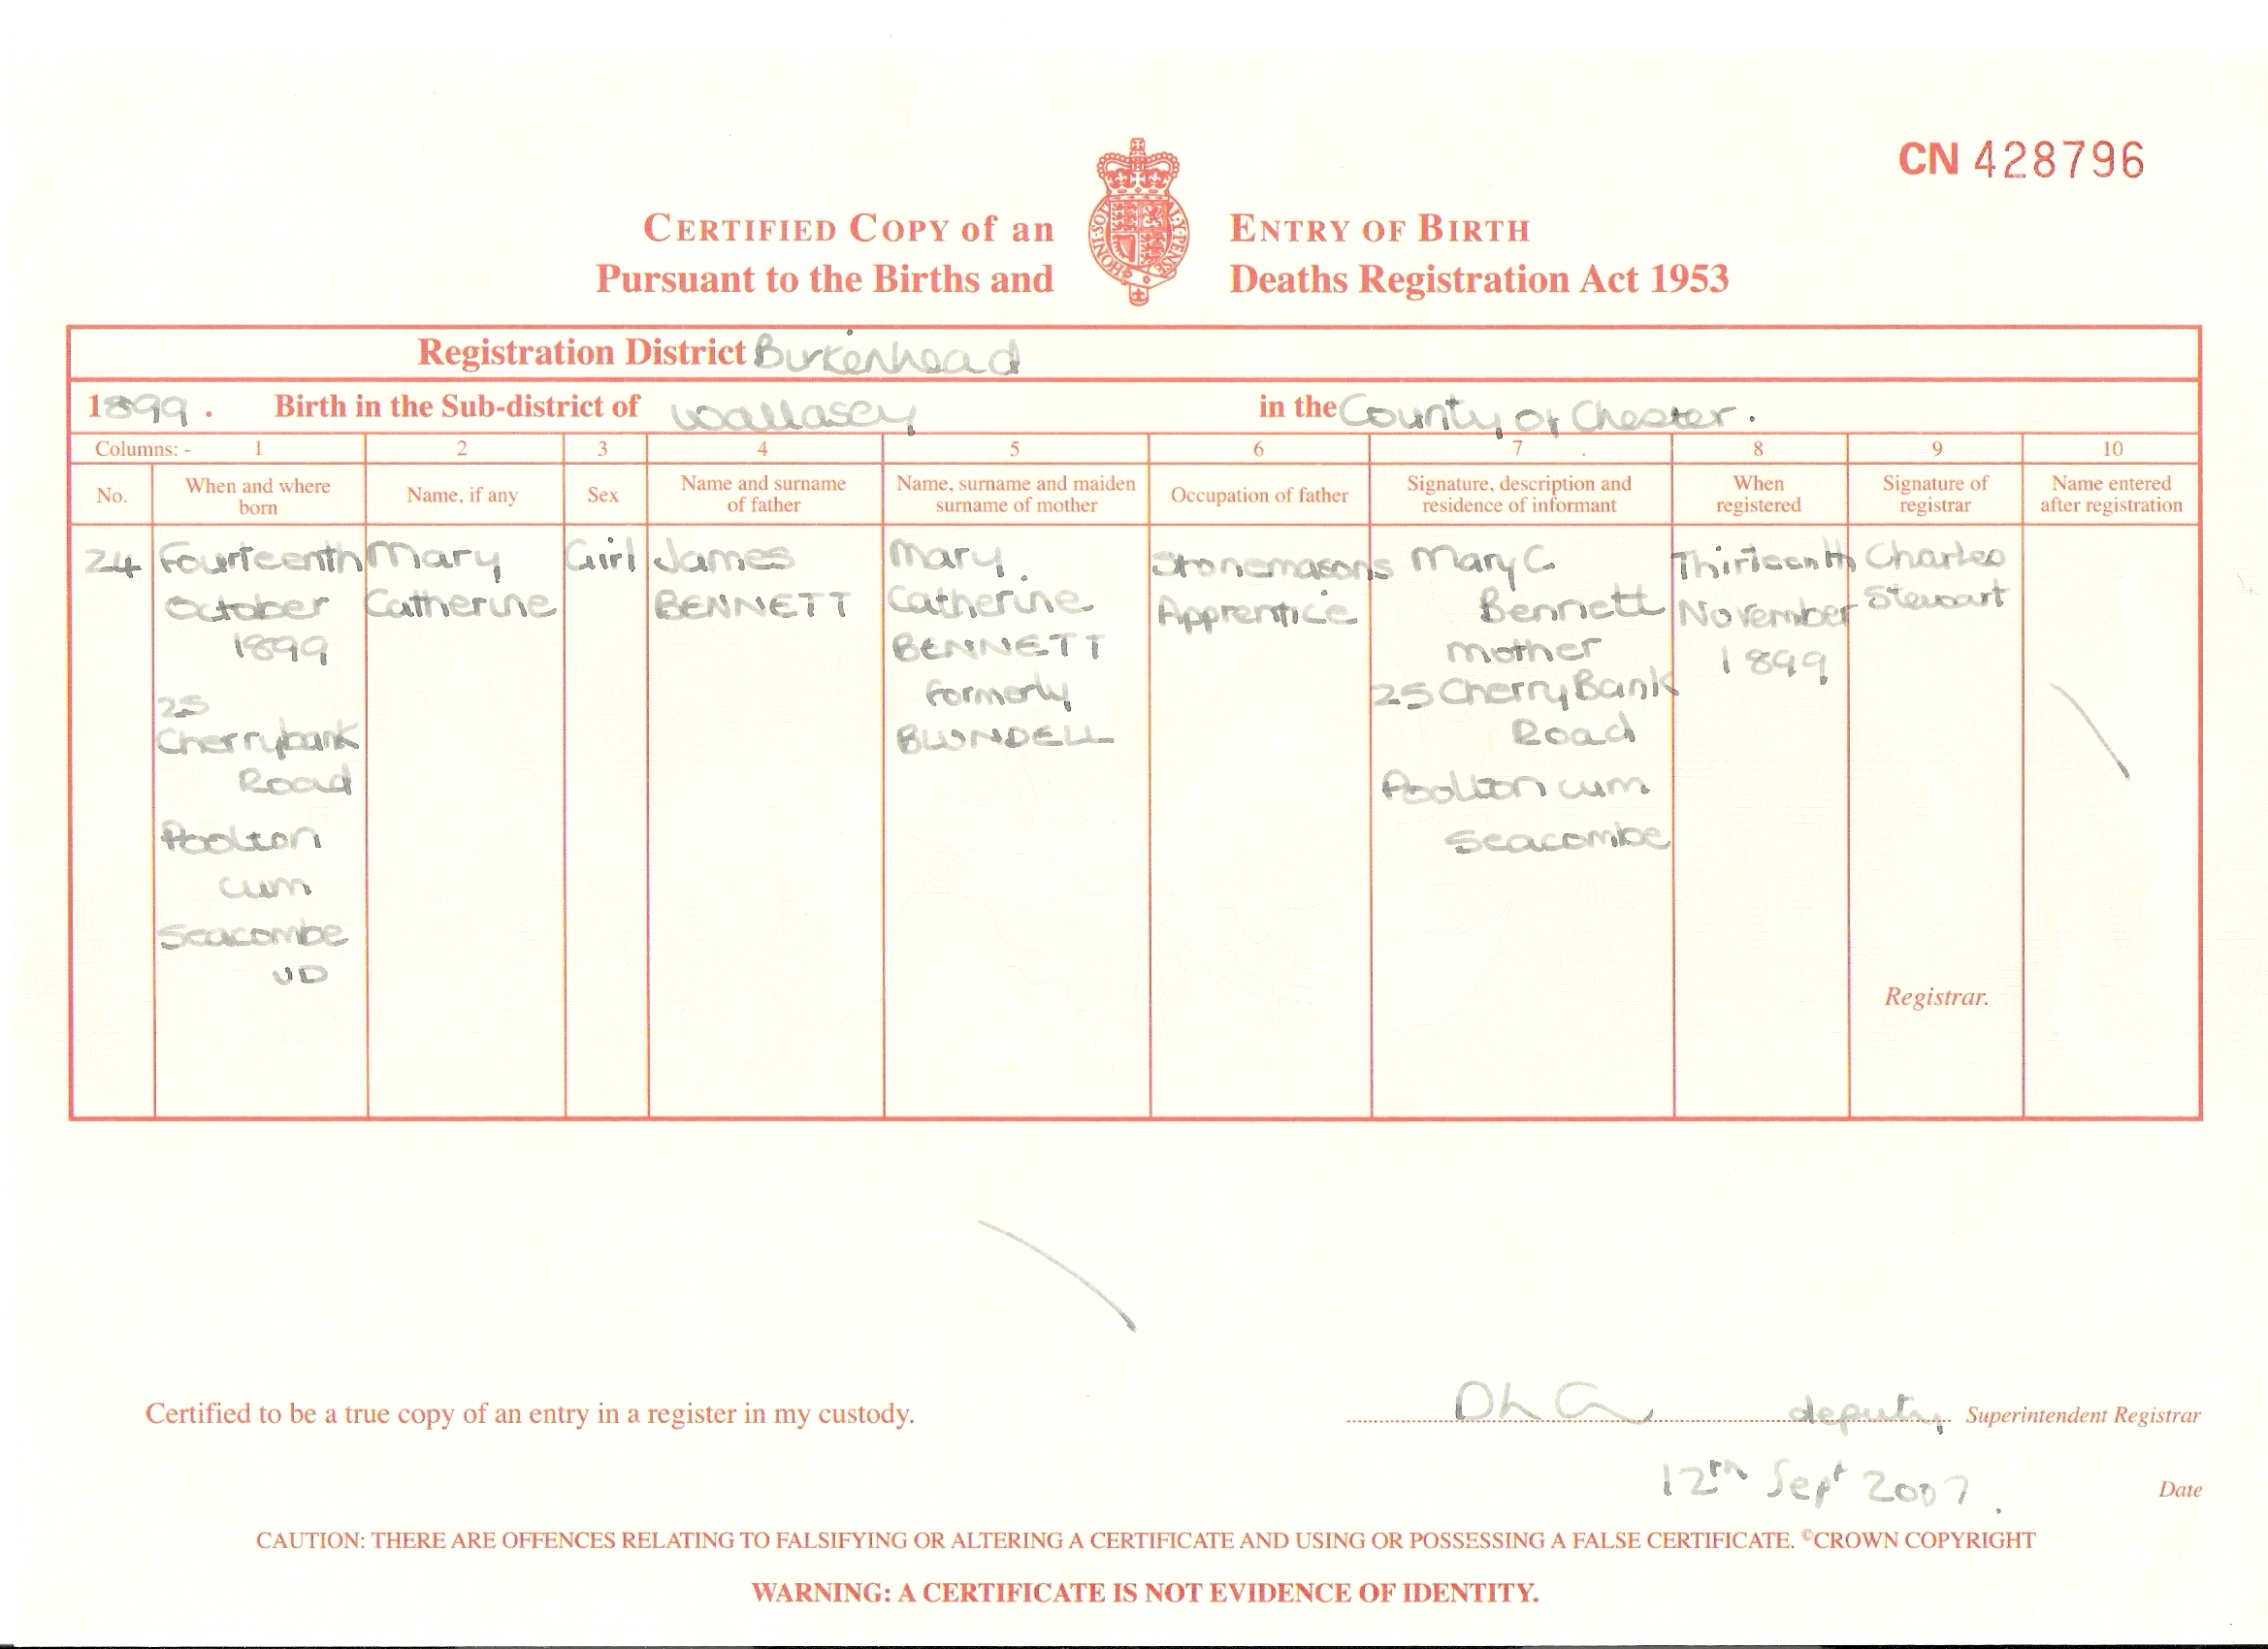 CN 428796
CERTIFIED COPY of an ENTRY OF BIRTH
Pursuant to the Births and Deaths Registration Act 1953
HONI·SOIT Y·PENSE
Registration District Birkenhead
1899. Birth in the Sub-district of Wallasey in the County of Chester.
Columns: - 1 2 3 4 5 6 7 8 9 10
No.
When and where
born
Name, if any
Sex
Name and surname
of father
Name, surname and maiden
surname of mother
Occupation of father
Signature, description and
residence of informant
When
registered
Signature of
registrar
Name entered
after registration
24
Fourteenth
October
1899
25
Cherrybank
Road
Poolton
cum
Seacombe
UD
Mary
Catherine
Girl
James
BENNETT
Mary
Catherine
BENNETT
formerly
BLUNDELL
Stonemasons
Apprentice
Mary C
Bennett
mother
25 Cherry Bank
Road
Poolton cum
Seacombe
Thirteenth
November
1899
Charles
Stewart
Registrar.
Certified to be a true copy of an entry in a register in my custody.
deputy Superintendent Registrar
12th Sept 2007. Date
CAUTION: THERE ARE OFFENCES RELATING TO FALSIFYING OR ALTERING A CERTIFICATE AND USING OR POSSESSING A FALSE CERTIFICATE. ©CROWN COPYRIGHT
WARNING: A CERTIFICATE IS NOT EVIDENCE OF IDENTITY.